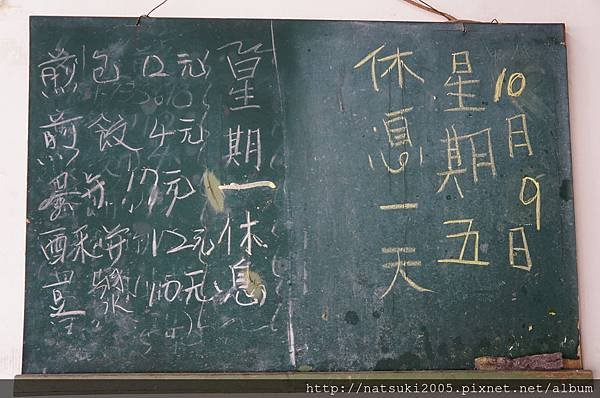 10月9日
星期五
休息一天
星期一休息
煎包 12元
煎餃 4元
17元
12元
10元
http://natsuki2005.pixnet.net/album